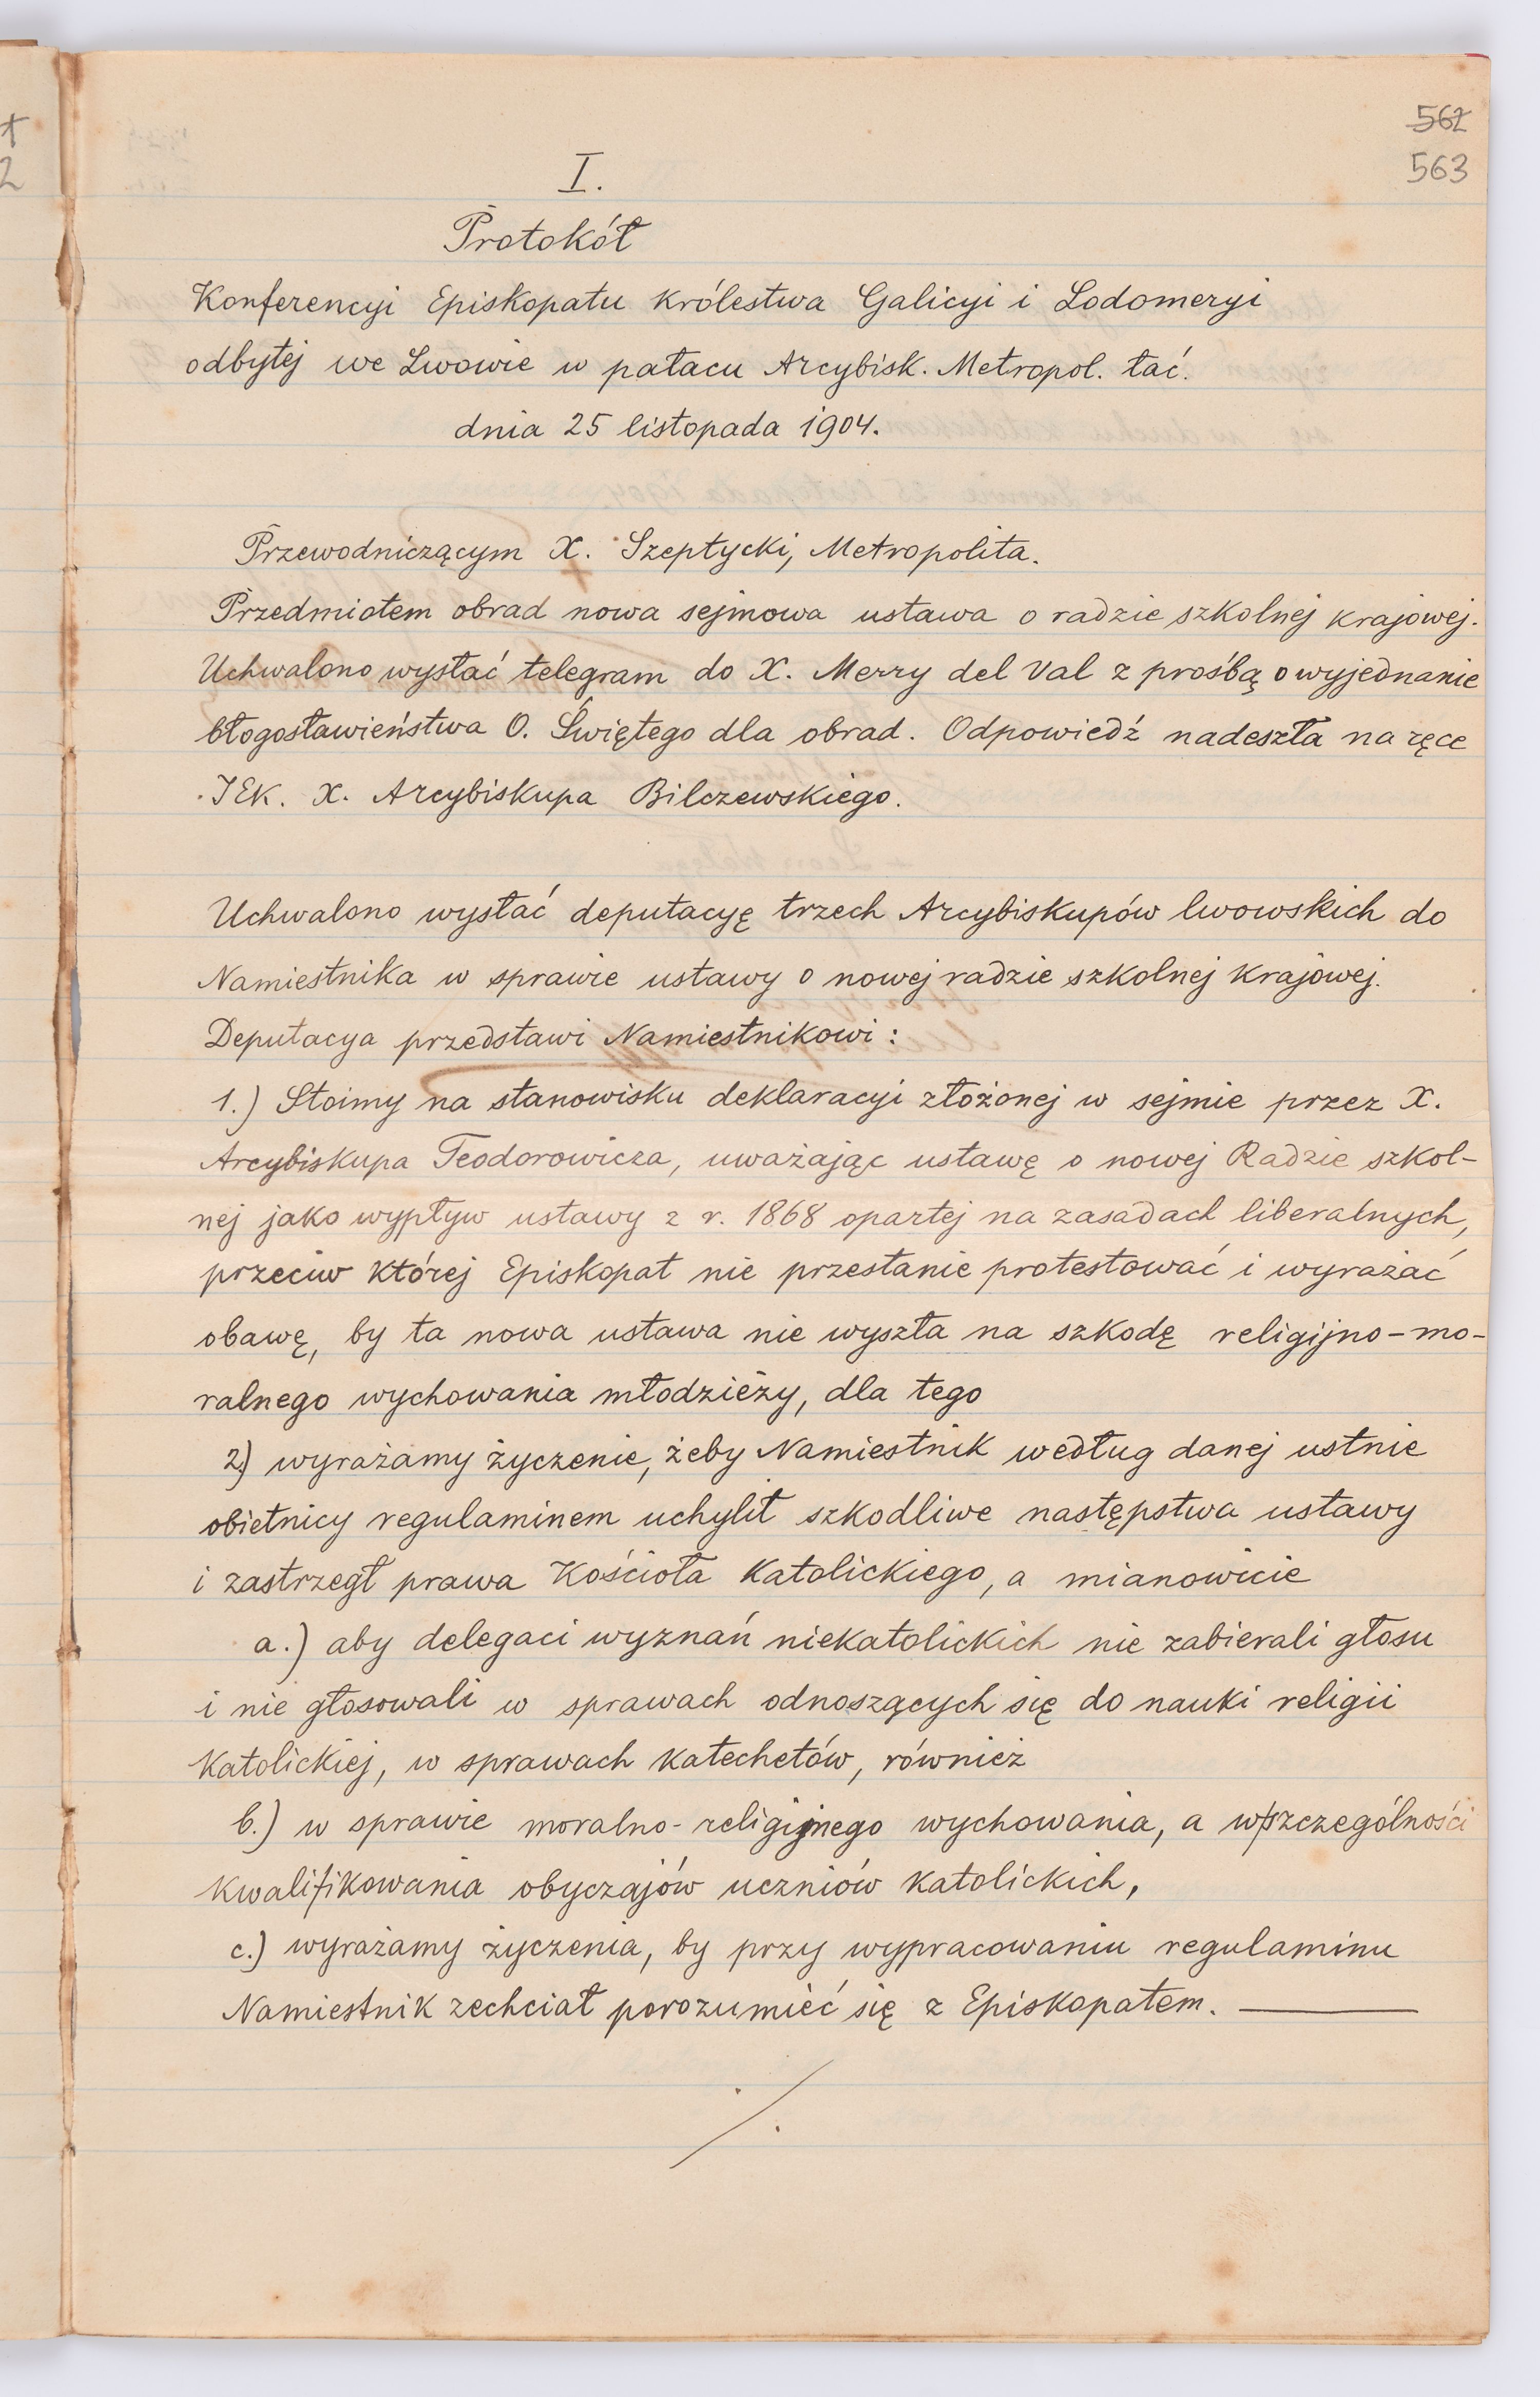 562
563
I.
Protokół
Konferencyi Episkopatu Królestwa Galicyi i Lodomeryi
odbytej we Lwowie w pałacu Arcybisk. Metropol. łać.
dnia 25 listopada 1904.
Przewodniczącym X. Szeptycki, Metropolita.
Przedmiotem obrad nowa sejmowa ustawa o radzie szkolnej krajowej.
Uchwalono wysłać telegram do X. Merry del Val z prośbą o wyjednanie
błogosławieństwa O. Świętego dla obrad. Odpowiedź nadeszła na ręce
JEk. X. Arcybiskupa Bilczewskiego.
Uchwalono wysłać deputacyę trzech Arcybiskupów lwowskich do
Namiestnika w sprawie ustawy o nowej radzie szkolnej krajowej.
Deputacya przedstawi Namiestnikowi:
1.) Stoimy na stanowisku deklaracyi złożonej w sejmie przez X.
Arcybiskupa Teodorowicza, uważając ustawę o nowej Radzie szkol-
nej jako wypływ ustawy z r. 1868 opartej na zasadach liberalnych,
przeciw której Episkopat nie przestanie protestować i wyrażać
obawę, by ta nowa ustawa nie wyszła na szkodę religijno-mo-
ralnego wychowania młodzieży, dla tego
2) wyrażamy życzenie, żeby Namiestnik według danej ustnie
obietnicy regulaminem uchylił szkodliwe następstwa ustawy
i zastrzegł prawa Kościoła Katolickiego, a mianowicie
a.) aby delegaci wyznań niekatolickich nie zabierali głosu
i nie głosowali w sprawach odnoszących się do nauki religii
Katolickiej, w sprawach katechetów, również
b.) w sprawie moralno-religijnego wychowania, a w szczególności
kwalifikowania obyczajów uczniów katolickich,
c.) wyrażamy życzenia, by przy wypracowaniu regulaminu
Namiestnik zechciał porozumieć się z Episkopatem.